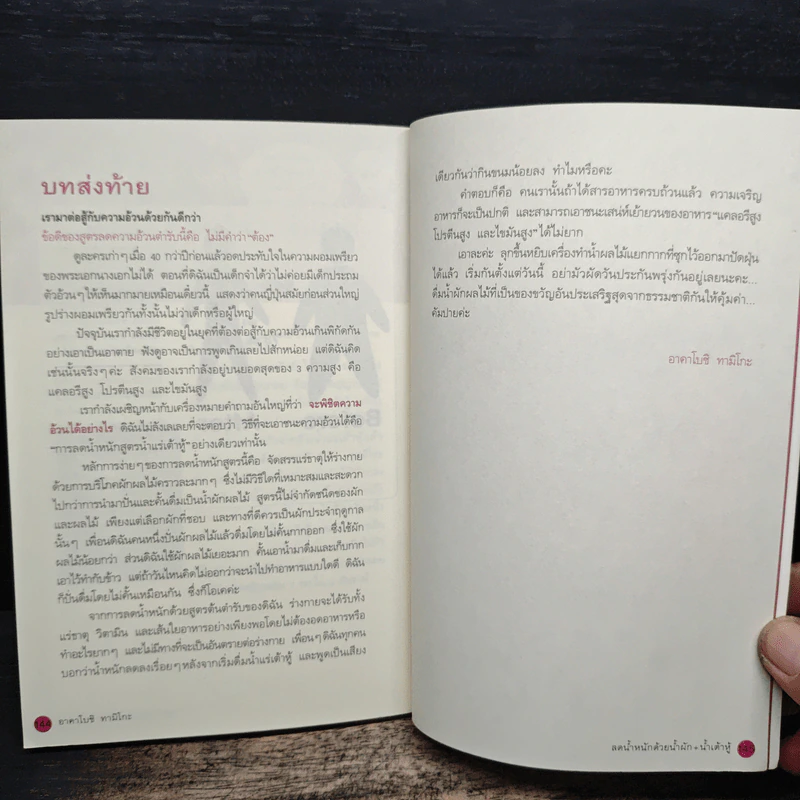 บทส่งท้าย
เรามาต่อสู้กับความอ้วนด้วยกันดีกว่า
ข้อดีของสูตรลดความอ้วนตำรับนี้คือ ไม่มีคำว่า "ต้อง"
ดูละครเก่าๆ เมื่อ 40 กว่าปีก่อนแล้วอดประทับใจในความผอมเพรียว
ของพระเอกนางเอกไม่ได้ ตอนที่ดิฉันเป็นเด็กจำได้ว่าไม่ค่อยมีเด็กประถม
ตัวอ้วนๆ ให้เห็นมากมายเหมือนเดี๋ยวนี้ แสดงว่าคนญี่ปุ่นสมัยก่อนส่วนใหญ่
รูปร่างผอมเพรียวกันทั้งนั้นไม่ว่าเด็กหรือผู้ใหญ่
ปัจจุบันเรากำลังมีชีวิตอยู่ในยุคที่ต้องต่อสู้กับความอ้วนเกินพิกัดกัน
อย่างเอาเป็นเอาตาย ฟังดูอาจเป็นการพูดเกินเลยไปสักหน่อย แต่ดิฉันคิด
เช่นนั้นจริงๆ ค่ะ สังคมของเรากำลังอยู่บนยอดสุดของ 3 ความสูง คือ
แคลอรีสูง โปรตีนสูง และไขมันสูง
เรากำลังเผชิญหน้ากับเครื่องหมายคำถามอันใหญ่ที่ว่า จะพิชิตความ
อ้วนได้อย่างไร ดิฉันไม่ลังเลเลยที่จะตอบว่า วิธีที่จะเอาชนะความอ้วนได้คือ
"การลดน้ำหนักสูตรน้ำแร่เต้าหู้" อย่างเดียวเท่านั้น
หลักการง่ายๆ ของการลดน้ำหนักสูตรนี้คือ จัดสรรแร่ธาตุให้ร่างกาย
ด้วยการบริโภคผักผลไม้คราวละมากๆ ซึ่งไม่มีวิธีใดที่เหมาะสมและสะดวก
ไปกว่าการนำมาปั่นและคั้นดื่มเป็นน้ำผักผลไม้ สูตรนี้ไม่จำกัดชนิดของผัก
และผลไม้ เพียงแต่เลือกผักที่ชอบ และทางที่ดีควรเป็นผักประจำฤดูกาล
นั้นๆ เพื่อนดิฉันคนหนึ่งปั่นผักผลไม้แล้วดื่มโดยไม่คั้นกากออก ซึ่งใช้ผัก
ผลไม้น้อยกว่า ส่วนดิฉันใช้ผักผลไม้เยอะมาก คั้นเอาน้ำมาดื่มและเก็บกาก
เอาไว้ทำกับข้าว แต่ถ้าวันไหนคิดไม่ออกว่าจะนำไปทำอาหารแบบใดดี ดิฉัน
ก็ปั่นดื่มโดยไม่คั้นเหมือนกัน ซึ่งก็โอเคค่ะ
จากการลดน้ำหนักด้วยสูตรต้นตำรับของดิฉัน ร่างกายจะได้รับทั้ง
แร่ธาตุ วิตามิน และเส้นใยอาหารอย่างเพียงพอโดยไม่ต้องอดอาหารหรือ
ทำอะไรยากๆ และไม่มีทางที่จะเป็นอันตรายต่อร่างกาย เพื่อนๆ ดิฉันทุกคน
บอกว่าน้ำหนักลดลงเรื่อยๆ หลังจากเริ่มดื่มน้ำแร่เต้าหู้ และพูดเป็นเสียง
144 อาคาโบชิ ทามิโกะ
เดียวกันว่ากินขนมน้อยลง ทำไมหรือคะ
คำตอบก็คือ คนเรานั้นถ้าได้สารอาหารครบถ้วนแล้ว ความเจริญ
อาหารก็จะเป็นปกติ และสามารถเอาชนะเสน่ห์เย้ายวนของอาหาร "แคลอรีสูง
โปรตีนสูง และไขมันสูง" ได้ไม่ยาก
เอาละค่ะ ลุกขึ้นหยิบเครื่องทำน้ำผลไม้แยกกากที่ซุกไว้ออกมาปัดฝุ่น
ได้แล้ว เริ่มกันตั้งแต่วันนี้ อย่ามัวผัดวันประกันพรุ่งกันอยู่เลยนะคะ...
ดื่มน้ำผักผลไม้ที่เป็นของขวัญอันประเสริฐสุดจากธรรมชาติกันให้คุ้มค่า...
คัมปายค่ะ
อาคาโบชิ ทามิโกะ
ลดน้ำหนักด้วยน้ำผัก+น้ำเต้าหู้ 145